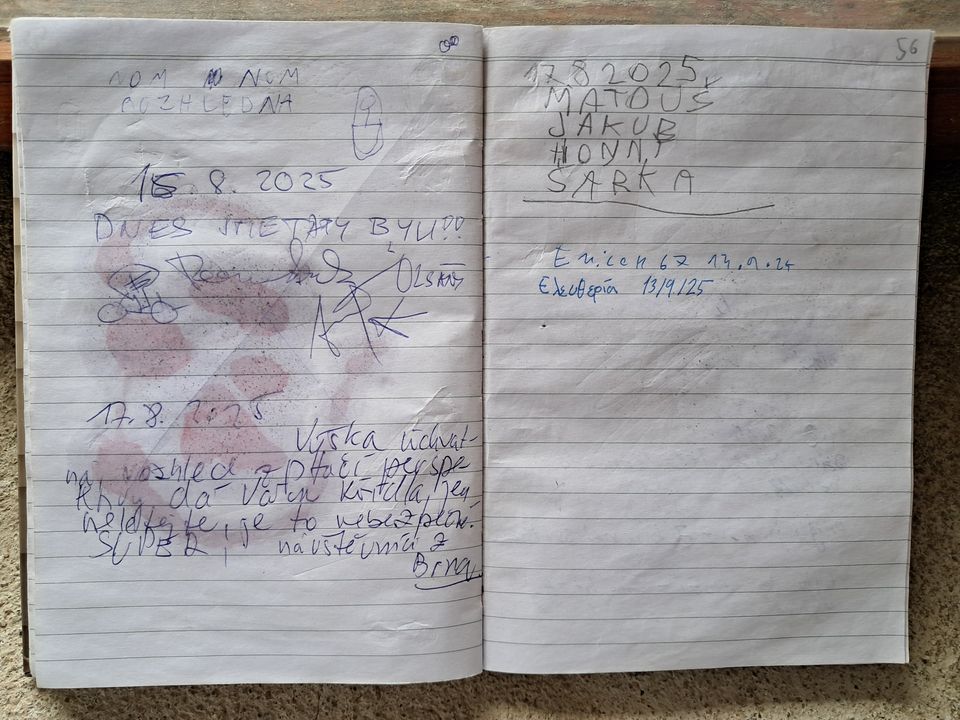 NOM NOM
ROZHLEDNA
15.8.2025
DNES SMETANY BYLI!!
17.8.2025
Výška úchvat-
ná rozhled z ptačí perspe
ktivy dá Vašim křídla, jen
nelétejte, je to nebezpečné.
SUPER, návštěvníci z
Brna.
56
17 8 2025
MATOUŠ
JAKUB
HONNY
ŠÁRKA
Ελευθερία 13/9/25